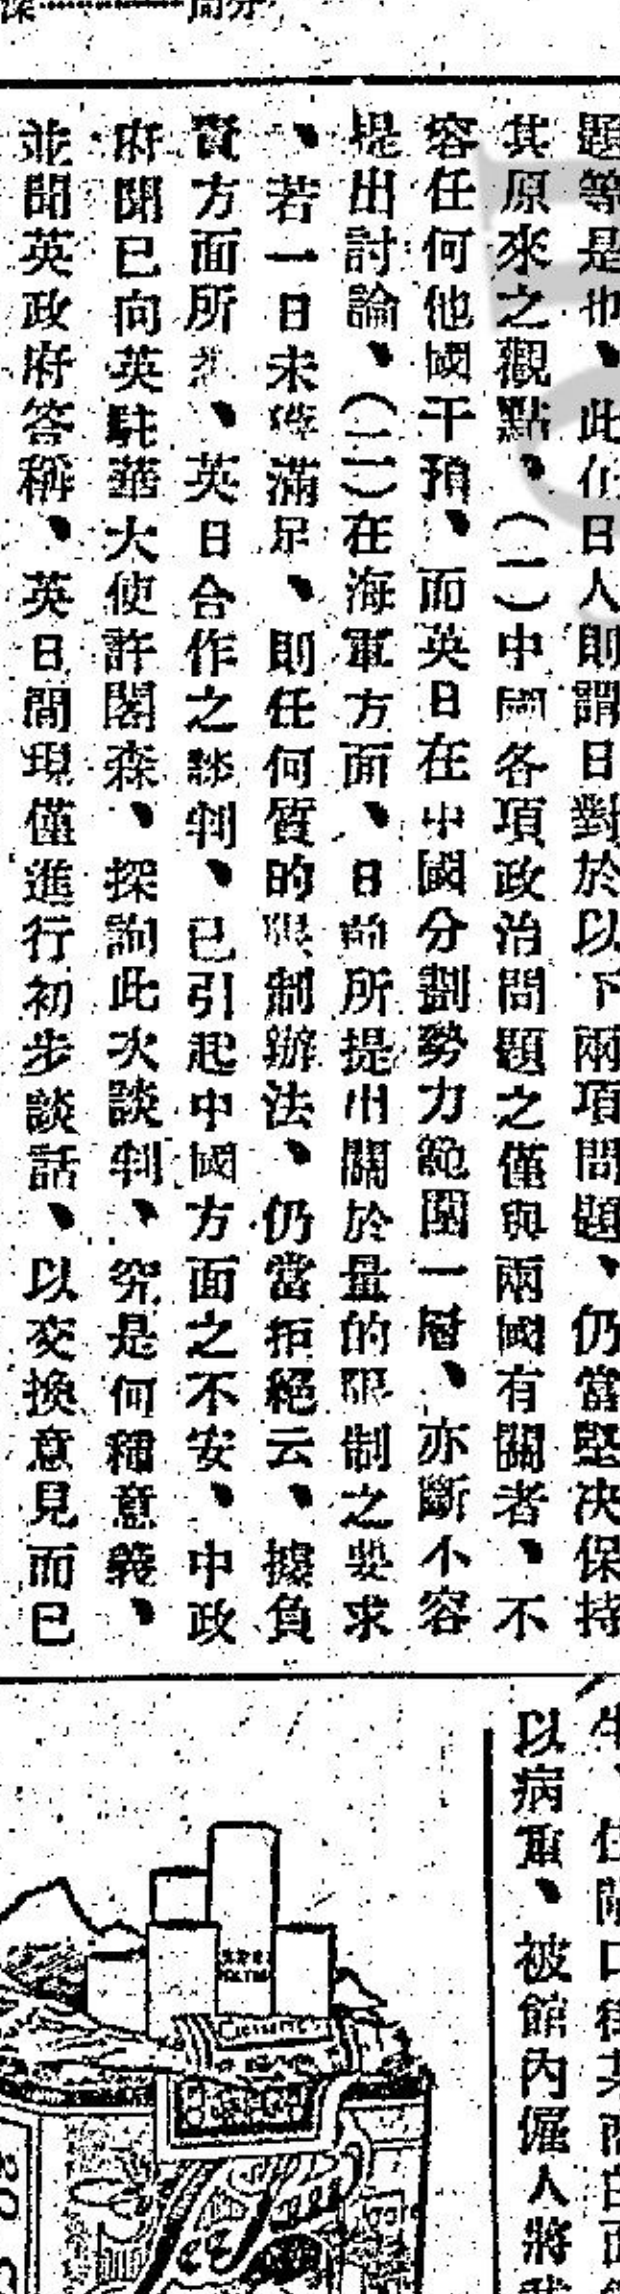 題等是也、此在日人則謂日對於以下兩項問題、仍當堅决保持
其原來之觀點、(一)中國各項政治問題之僅與兩國有關者、不
容任何他國干預、而英日在中國分劃勢力範圍一層、亦斷不容
提出討論、(二)在海軍方面、日前所提出關於量的限制之要求
、若一日未獲滿足、則任何質的限制辦法、仍當拒絕云、據負
責方面所、英日合作之談判、已引起中國方面之不安、中政
府聞已向英駐華大使許閣森、探詢此次談判、究是何種意義、
並聞英政府答稱、英日間現僅進行初步談話、以交換意見而已
以病重、被館內僱人將